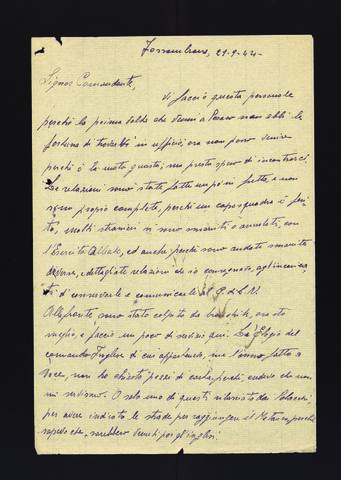 Fossombrone, 29-9-44-
Signor Comandante,
Vi faccio questa personale
perché la prima volta che venni a Pesaro non ebbi la
fortuna di trovarvi in ufficio; ora non posso venire
perché è la moto guasta; ma presto spero di incontrarci.
Le relazioni sono state fatte un po' in fretta e non
sono proprio complete, perché un caposquadra è feri-
to, molti stranieri si sono smarriti o arruolati con
l'Esercito Alleato, ed anche perché sono andate smarrite
diverse, e dettagliate relazioni che io consegnavo, agli incarica-
ti di conservarle e comunicarle al C.d.L.N.
All'fronte sono stato colpito da ora sto
meglio, e faccio un poco di servizio qui. L'Elogio del
comando Inglese di cui appartenevo, me l'hanno fatto a
voce, non ho chiesto pezzi di carta, perché, credevo che non
mi servissero. O solo uno di questi rilasciato dai Polacchi
per avere indicato le strade per raggiungere il Metauro, perché
sapevo che, sarebbero venuti poi gli inglesi.